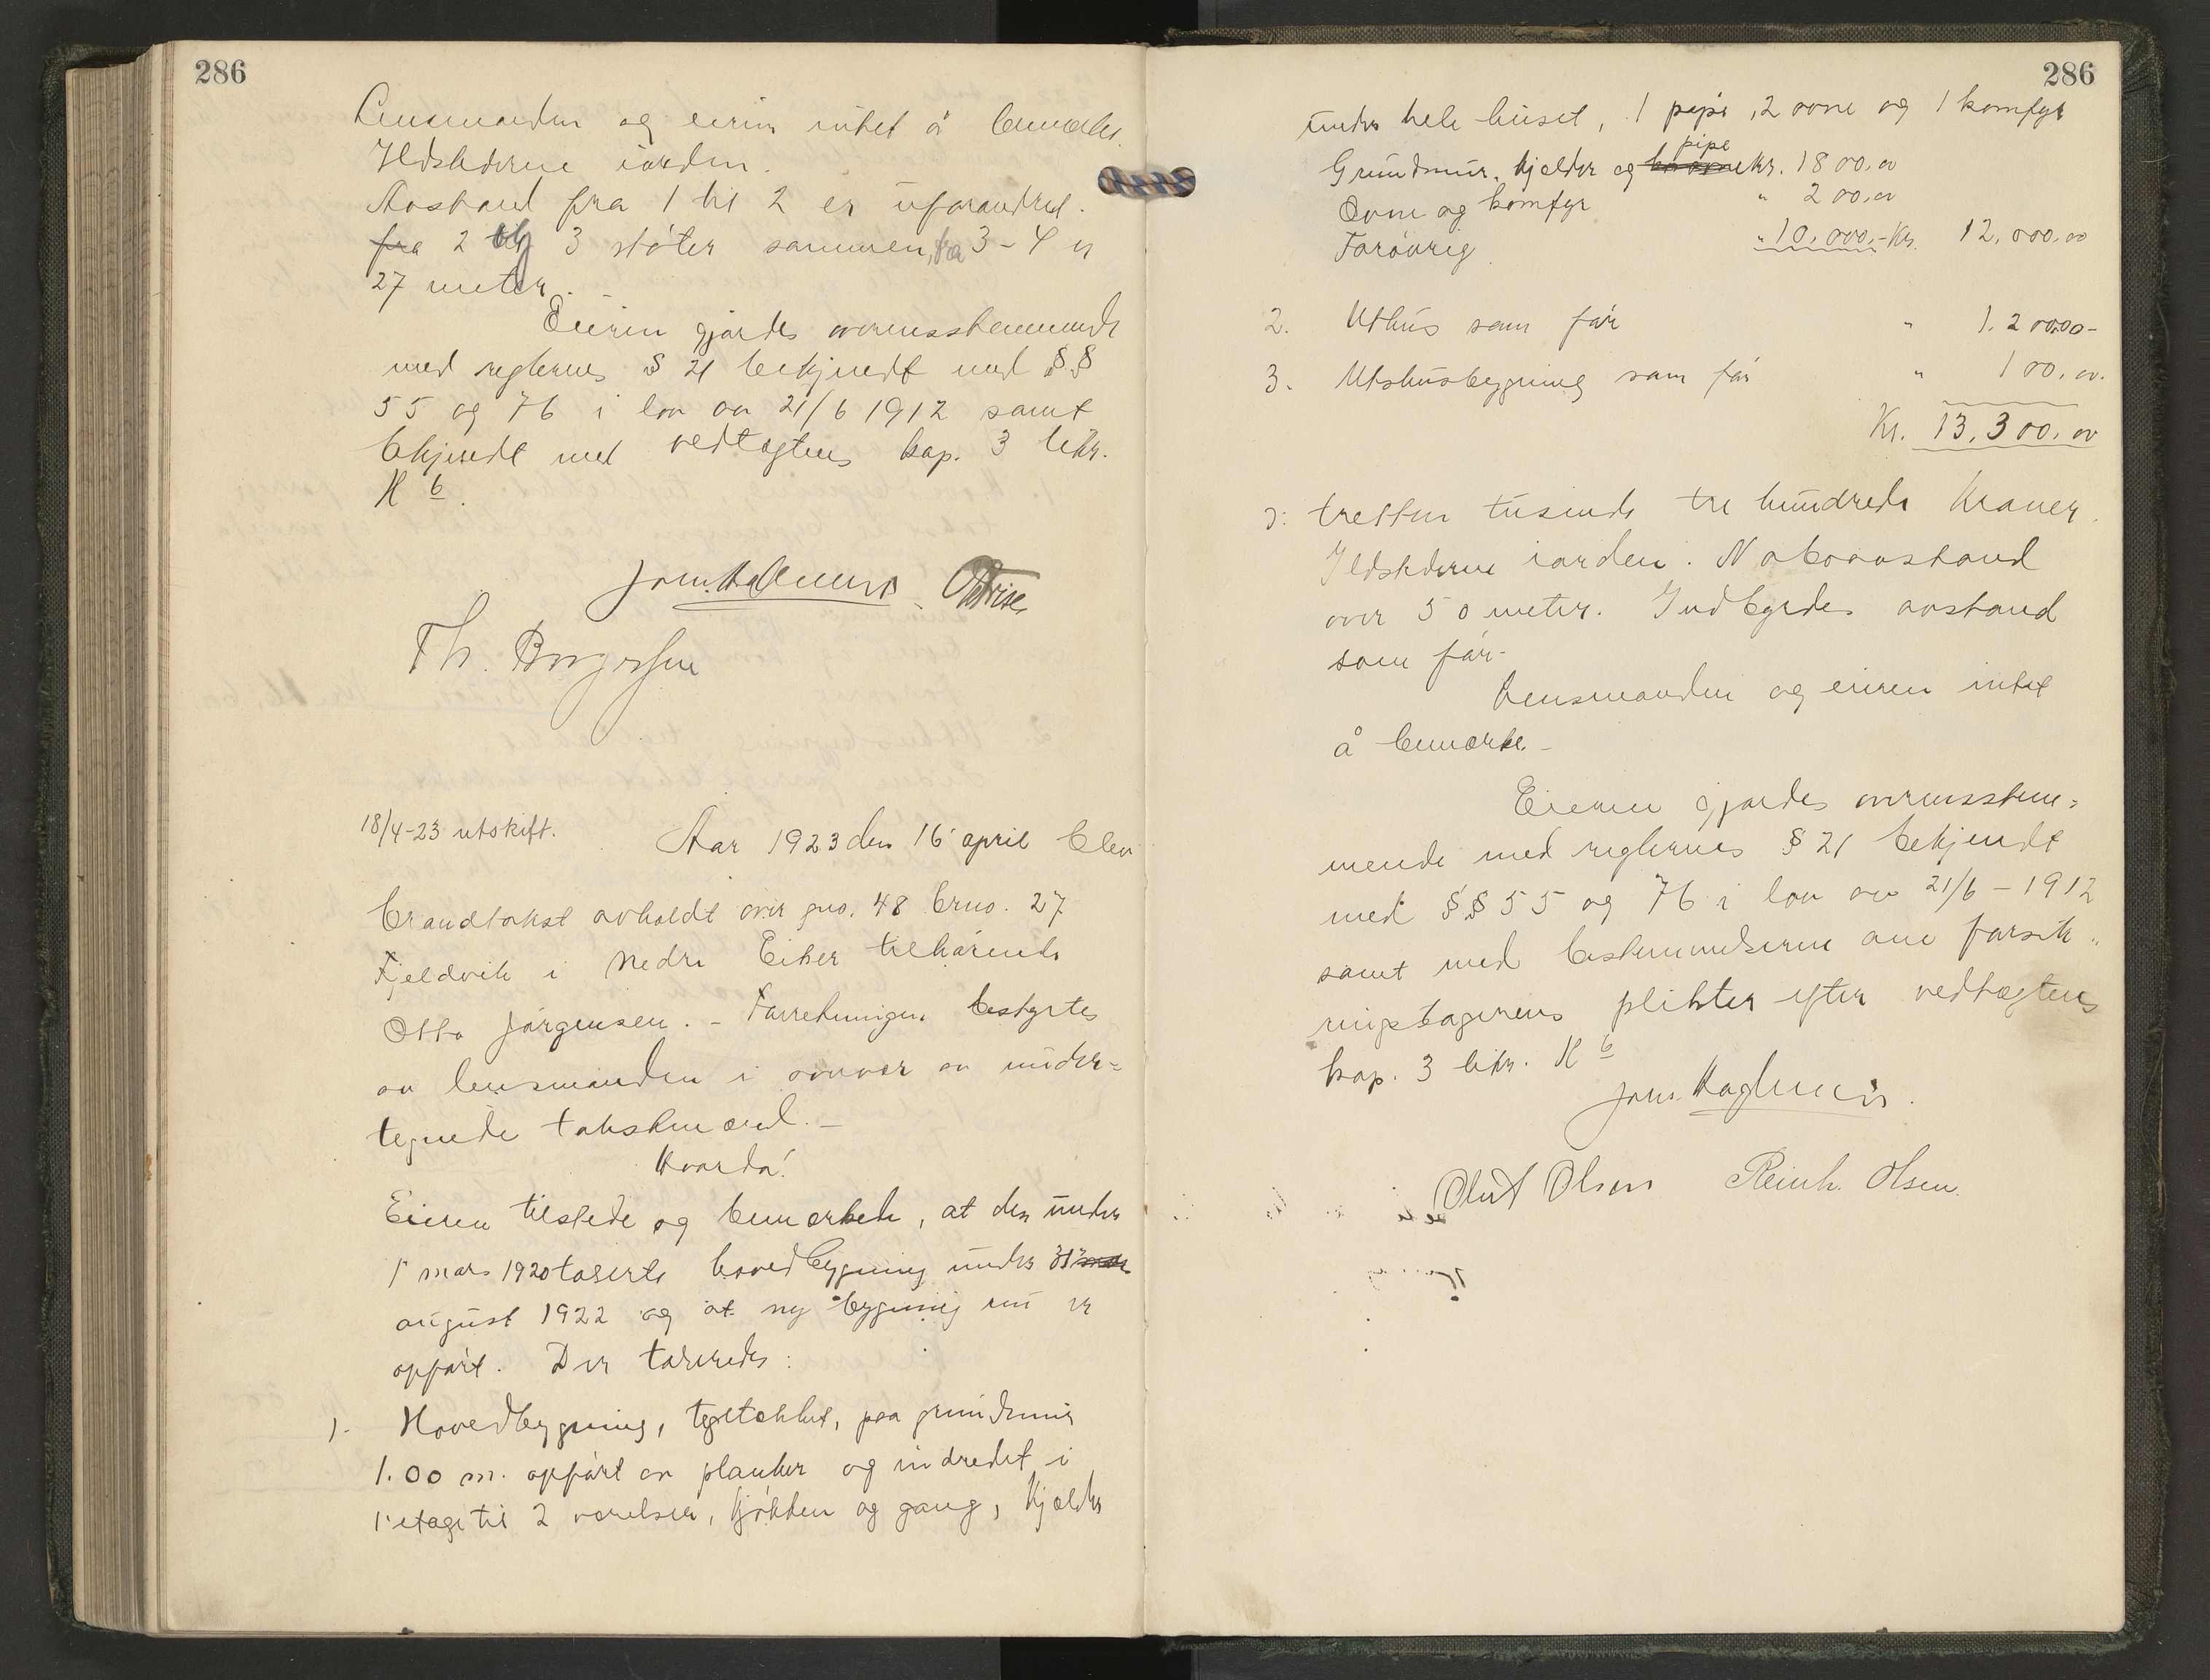 286
Lensmanden og eieren intet å bemerke.
Ildstederne iorden.
Avstand fra 1 til 2 er uforandret.
fra 2 og 3 støter sammen, fra 3-4 er
27 meter. -
Eieren gjordes overensstemmende
med reglernes § 21 bekjendt med §§
55 og 76 i lov av 21/6 1912 samt
bekjendt med vedtægtens kap. 3 litr.
H b.
Th. Borgersen
18/4-23 utskift.
Aar 1923 den 16 april blev
brandtakst avholdt over gno. 48 brno. 27
Fjeldvik i Nedre Eiker tilhørende
Otto Jørgensen. - Forretningen bestyrtes
av lensmanden i overvær av under=
tegnede takstmænd. -
Hvorda!
Eieren tilstede og bemerkede, at den under
1 mars 1920 taxerte hovedbygning under 31
august 1922 og at ny bygning nu er
opført. Der taxeredes:
1. Hovedbygning, tegltækket, paa grundmur
1.00 m. opført av planker og indredet i
1 etage til 2 værelser, kjøkken og gang, kjælder
286
under hele huset, 1 pipe, 2 ovne og 1 komfyr
pipe
Grundmur, kjelder og kr. 1800,00
Ovne og komfyr " 200,00
Forøvrig " 10,000,- Kr. 12,000,00
2. Uthus som før " 1.20000-
3. Uthusbygning som før " 100,00.
Kr. 13,300,00
ɔ: tretten tusinde tre hundrede Kroner.
Ildstederne iorden. Naboavstand
over 50 meter. Indbyrdes avstand
som før-
Lensmanden og eieren intet
å bemerke -
Eieren gjordes overensstem=
mende med reglernes § 21 bekjendt
med §§ 55 og 76 i lov av 21/6 - 1912
samt med bestemmelserne om forsik"
ringstagerens plikter efter vedtægtens
kap. 3 litr. H b
Oluf Olsen Reinh. Olsen